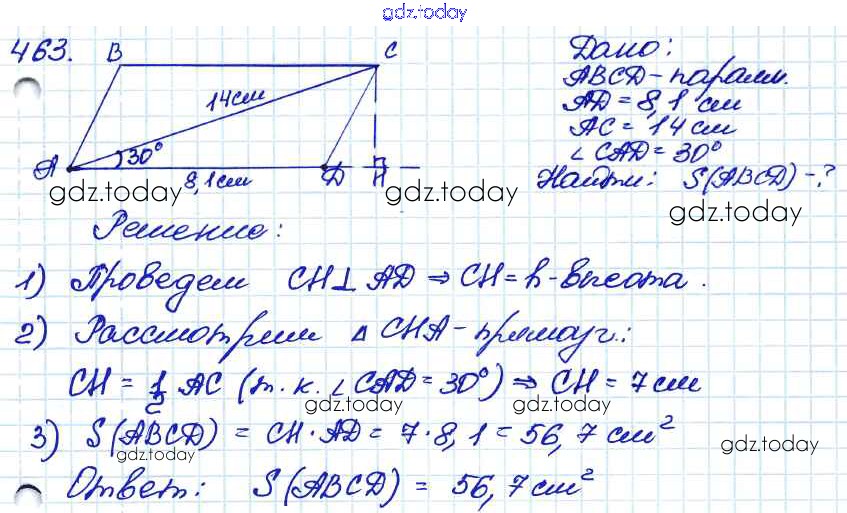 gdz.today
463.
B
C
14см
A
30°
8,1см
D
H
Дано:
ABCD-паралл.
AD=8,1 см
AC=14 см
∠CAD=30°
Найти: S(ABCD)-?
gdz.today
gdz.today
Решение:
1) Проведем CH⊥AD ⇒ CH=h-высота.
2) Рассмотрим △CHA-прямоуг.:
CH = 1/2 AC (т.к. ∠CAD=30°) ⇒ CH=7см
gdz.today
gdz.today
3) S(ABCD) = CH·AD = 7·8,1=56,7 см²
gdz.today
gdz.today
Ответ: S(ABCD) = 56,7см²